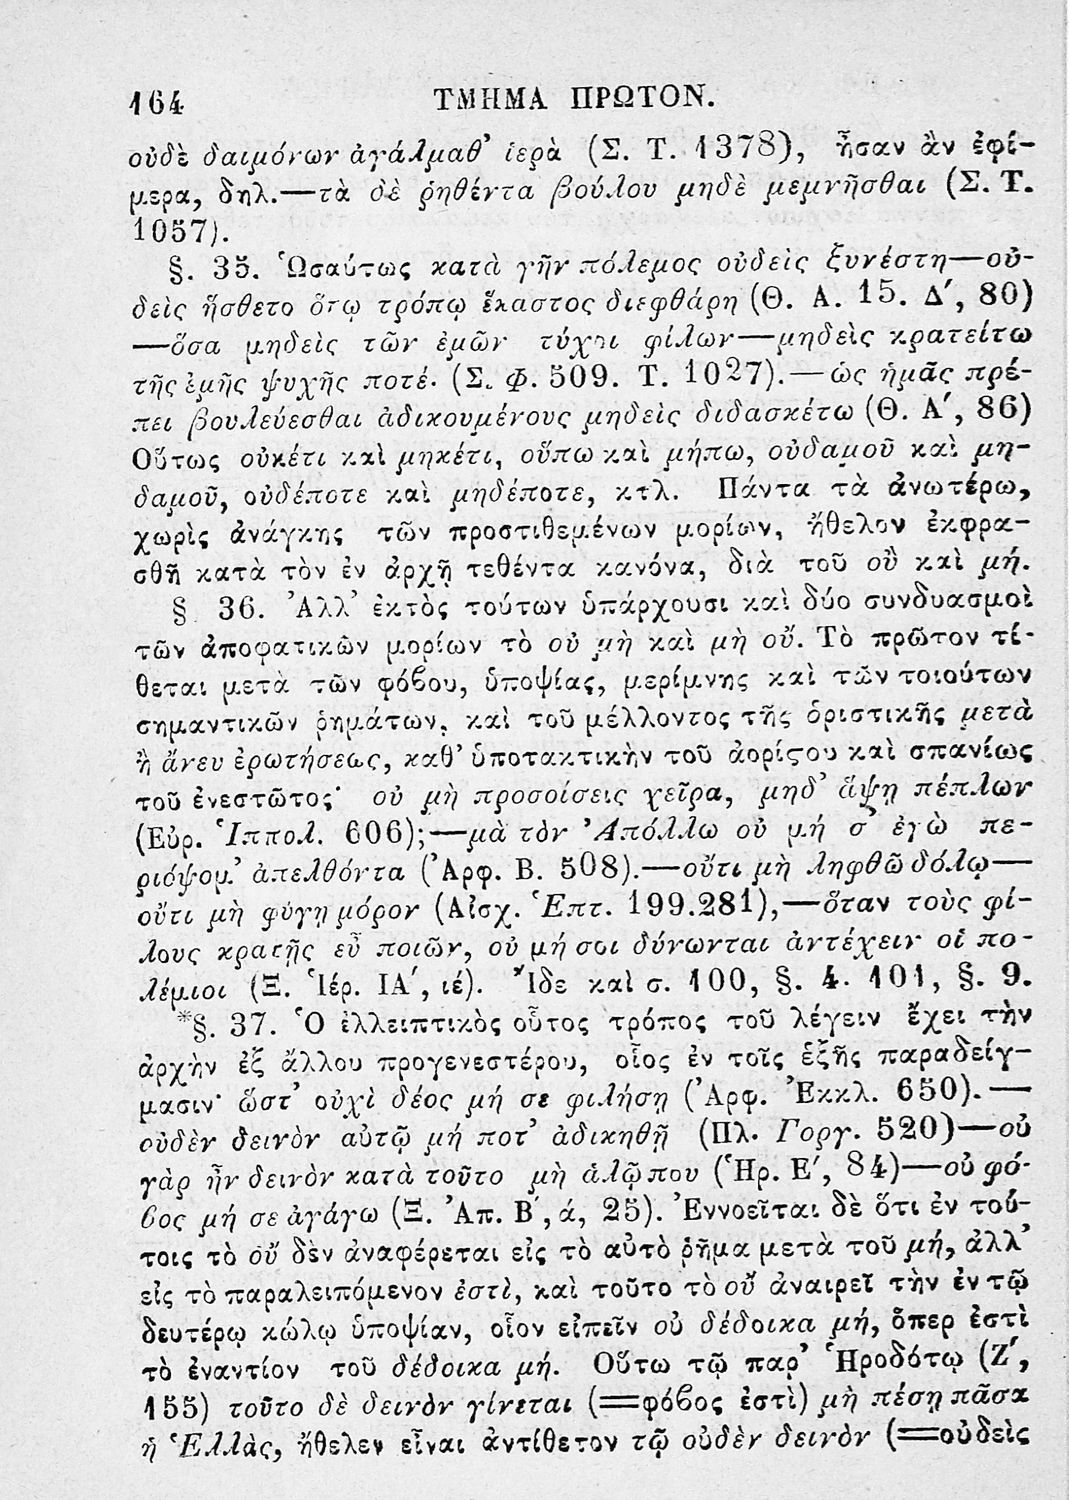 164 ΤΜΗΜΑ ΠΡΩΤΟΝ.
οὐδὲ δαιμόνων ἀγάλμαθ’ ἱερὰ (Σ. Τ. 1378), ἦσαν ἂν ἐφί-
μερα, δηλ.—τὰ δὲ ῥηθέντα βούλου μηδὲ μεμνῆσθαι (Σ. Τ.
1057).
§. 35. Ὡσαύτως κατὰ γῆν πόλεμος οὐδεὶς ξυνέστη—οὐ-
δεὶς ᾔσθετο ὅτῳ τρόπῳ ἕκαστος διεφθάρη (Θ. Α. 15. Δ′, 80)
—ὅσα μηδεὶς τῶν ἐμῶν τύχοι φίλων—μηδεὶς κρατείτω
τῆς ἐμῆς ψυχῆς ποτέ· (Σ. Φ. 509. Τ. 1027).—ὡς ἡμᾶς πρέ-
πει βουλεύεσθαι ἀδικουμένους μηδεὶς διδασκέτω (Θ. Α′, 86)
Οὕτως οὐκέτι καὶ μηκέτι, οὔπω καὶ μήπω, οὐδαμοῦ καὶ μη-
δαμοῦ, οὐδέποτε καὶ μηδέποτε, κτλ. Πάντα τὰ ἀνωτέρω,
χωρὶς ἀνάγκης τῶν προστιθεμένων μορίων, ἤθελον ἐκφρα-
σθῆ κατὰ τὸν ἐν ἀρχῇ τεθέντα κανόνα, διὰ τοῦ οὒ καὶ μή.
§ 36. Ἀλλ’ ἐκτὸς τούτων ὑπάρχουσι καὶ δύο συνδυασμοὶ
τῶν ἀποφατικῶν μορίων τὸ οὐ μὴ καὶ μὴ οὔ. Τὸ πρῶτον τί-
θεται μετὰ τῶν φόβου, ὑποψίας, μερίμνης καὶ τῶν τοιούτων
σημαντικῶν ῥημάτων, καὶ τοῦ μέλλοντος τῆς ὁριστικῆς μετὰ
ἢ ἄνευ ἐρωτήσεως, καθ’ ὑποτακτικὴν τοῦ ἀορίστου καὶ σπανίως
τοῦ ἐνεστῶτος· οὐ μὴ προσοίσεις χεῖρα, μηδ’ ἅψῃ πέπλων
(Εὐρ. Ἱππολ. 606);—μὰ τὸν Ἀπόλλω οὐ μή σ’ ἐγὼ πε-
ριόψομ’ ἀπελθόντα (Ἀρφ. Β. 508).—οὔτι μὴ ληφθῶ δόλῳ—
οὔτι μὴ φύγῃ μόρον (Αἰσχ. Ἑπτ. 199.281),—ὅταν τοὺς φί-
λους κρατῇς εὖ ποιῶν, οὐ μή σοι δύνωνται ἀντέχειν οἱ πο-
λέμιοι (Ξ. Ἱέρ. ΙΑ′, ιέ). Ἴδε καὶ σ. 100, §. 4. 101, §. 9.
*§. 37. Ὁ ἐλλειπτικὸς οὗτος τρόπος τοῦ λέγειν ἔχει τὴν
ἀρχὴν ἐξ ἄλλου προγενεστέρου, οἷος ἐν τοῖς ἑξῆς παραδείγ-
μασιν· ὥστ’ οὐχὶ δέος μή σε φιλήσῃ (Ἀρφ. Ἐκκλ. 650).—
οὐδὲν δεινὸν αὐτῷ μή ποτ’ ἀδικηθῇ (Πλ. Γοργ. 520)—οὐ
γὰρ ἦν δεινὸν κατὰ τοῦτο μὴ ἁλῷ που (Ἡρ. Ε′, 84)—οὐ φό-
βος μή σε ἀγάγω (Ξ. Ἀπ. Β′, ά, 25). Ἐννοεῖται δὲ ὅτι ἐν τού-
τοις τὸ οὔ δὲν ἀναφέρεται εἰς τὸ αὐτὸ ῥῆμα μετὰ τοῦ μή, ἀλλ’
εἰς τὸ παραλειπόμενον ἐστὶ, καὶ τοῦτο τὸ οὔ ἀναιρεῖ τὴν ἐν τῷ
δευτέρῳ κώλῳ ὑποψίαν, οἷον εἰπεῖν οὐ δέδοικα μή, ὅπερ ἐστὶ
τὸ ἐναντίον τοῦ δέδοικα μή. Οὕτω τῷ παρ’ Ἡροδότῳ (Ζ′,
155) τοῦτο δὲ δεινὸν γίνεται (=φόβος ἐστὶ) μὴ πέσῃ πᾶσα
ἡ Ἑλλὰς, ἤθελεν εἶναι ἀντίθετον τῷ οὐδὲν δεινὸν (=οὐδεὶς